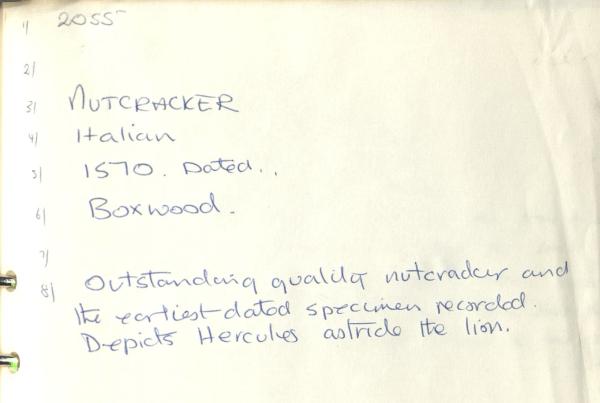 1/ 2055
2/
3/ NUTCRACKER
4/ Italian
5/ 1570. Dated..
6/ Boxwood.
7/
8/ Outstanding quality nutcracker and
the earliest dated specimen recorded.
Depicts Hercules astride the lion.